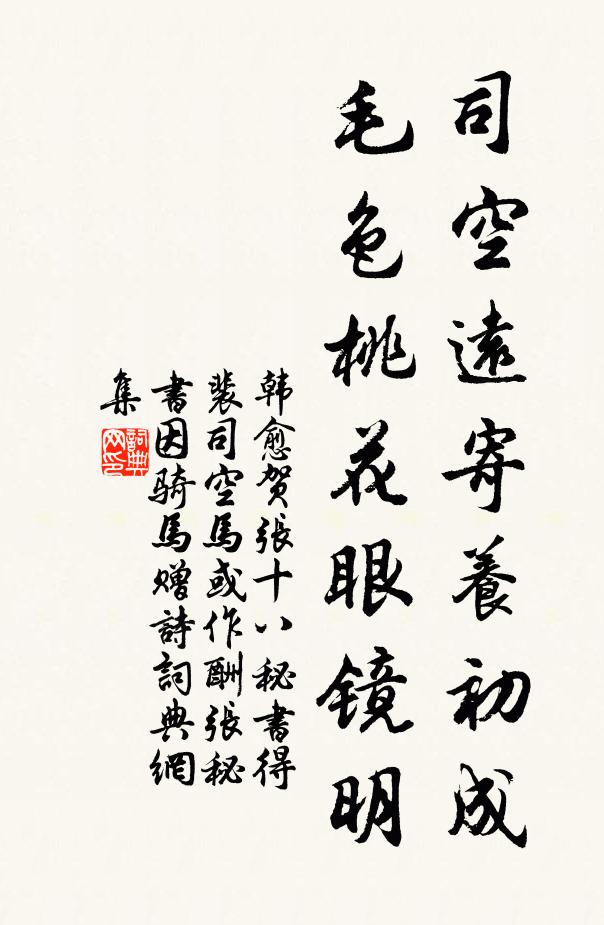 司空遠寄養初成
毛色桃花眼镜明
韩愈贺張十八秘書得
裴司空馬或作酬張秘
書因骑馬赠詩詞典網
集
詞典
网印